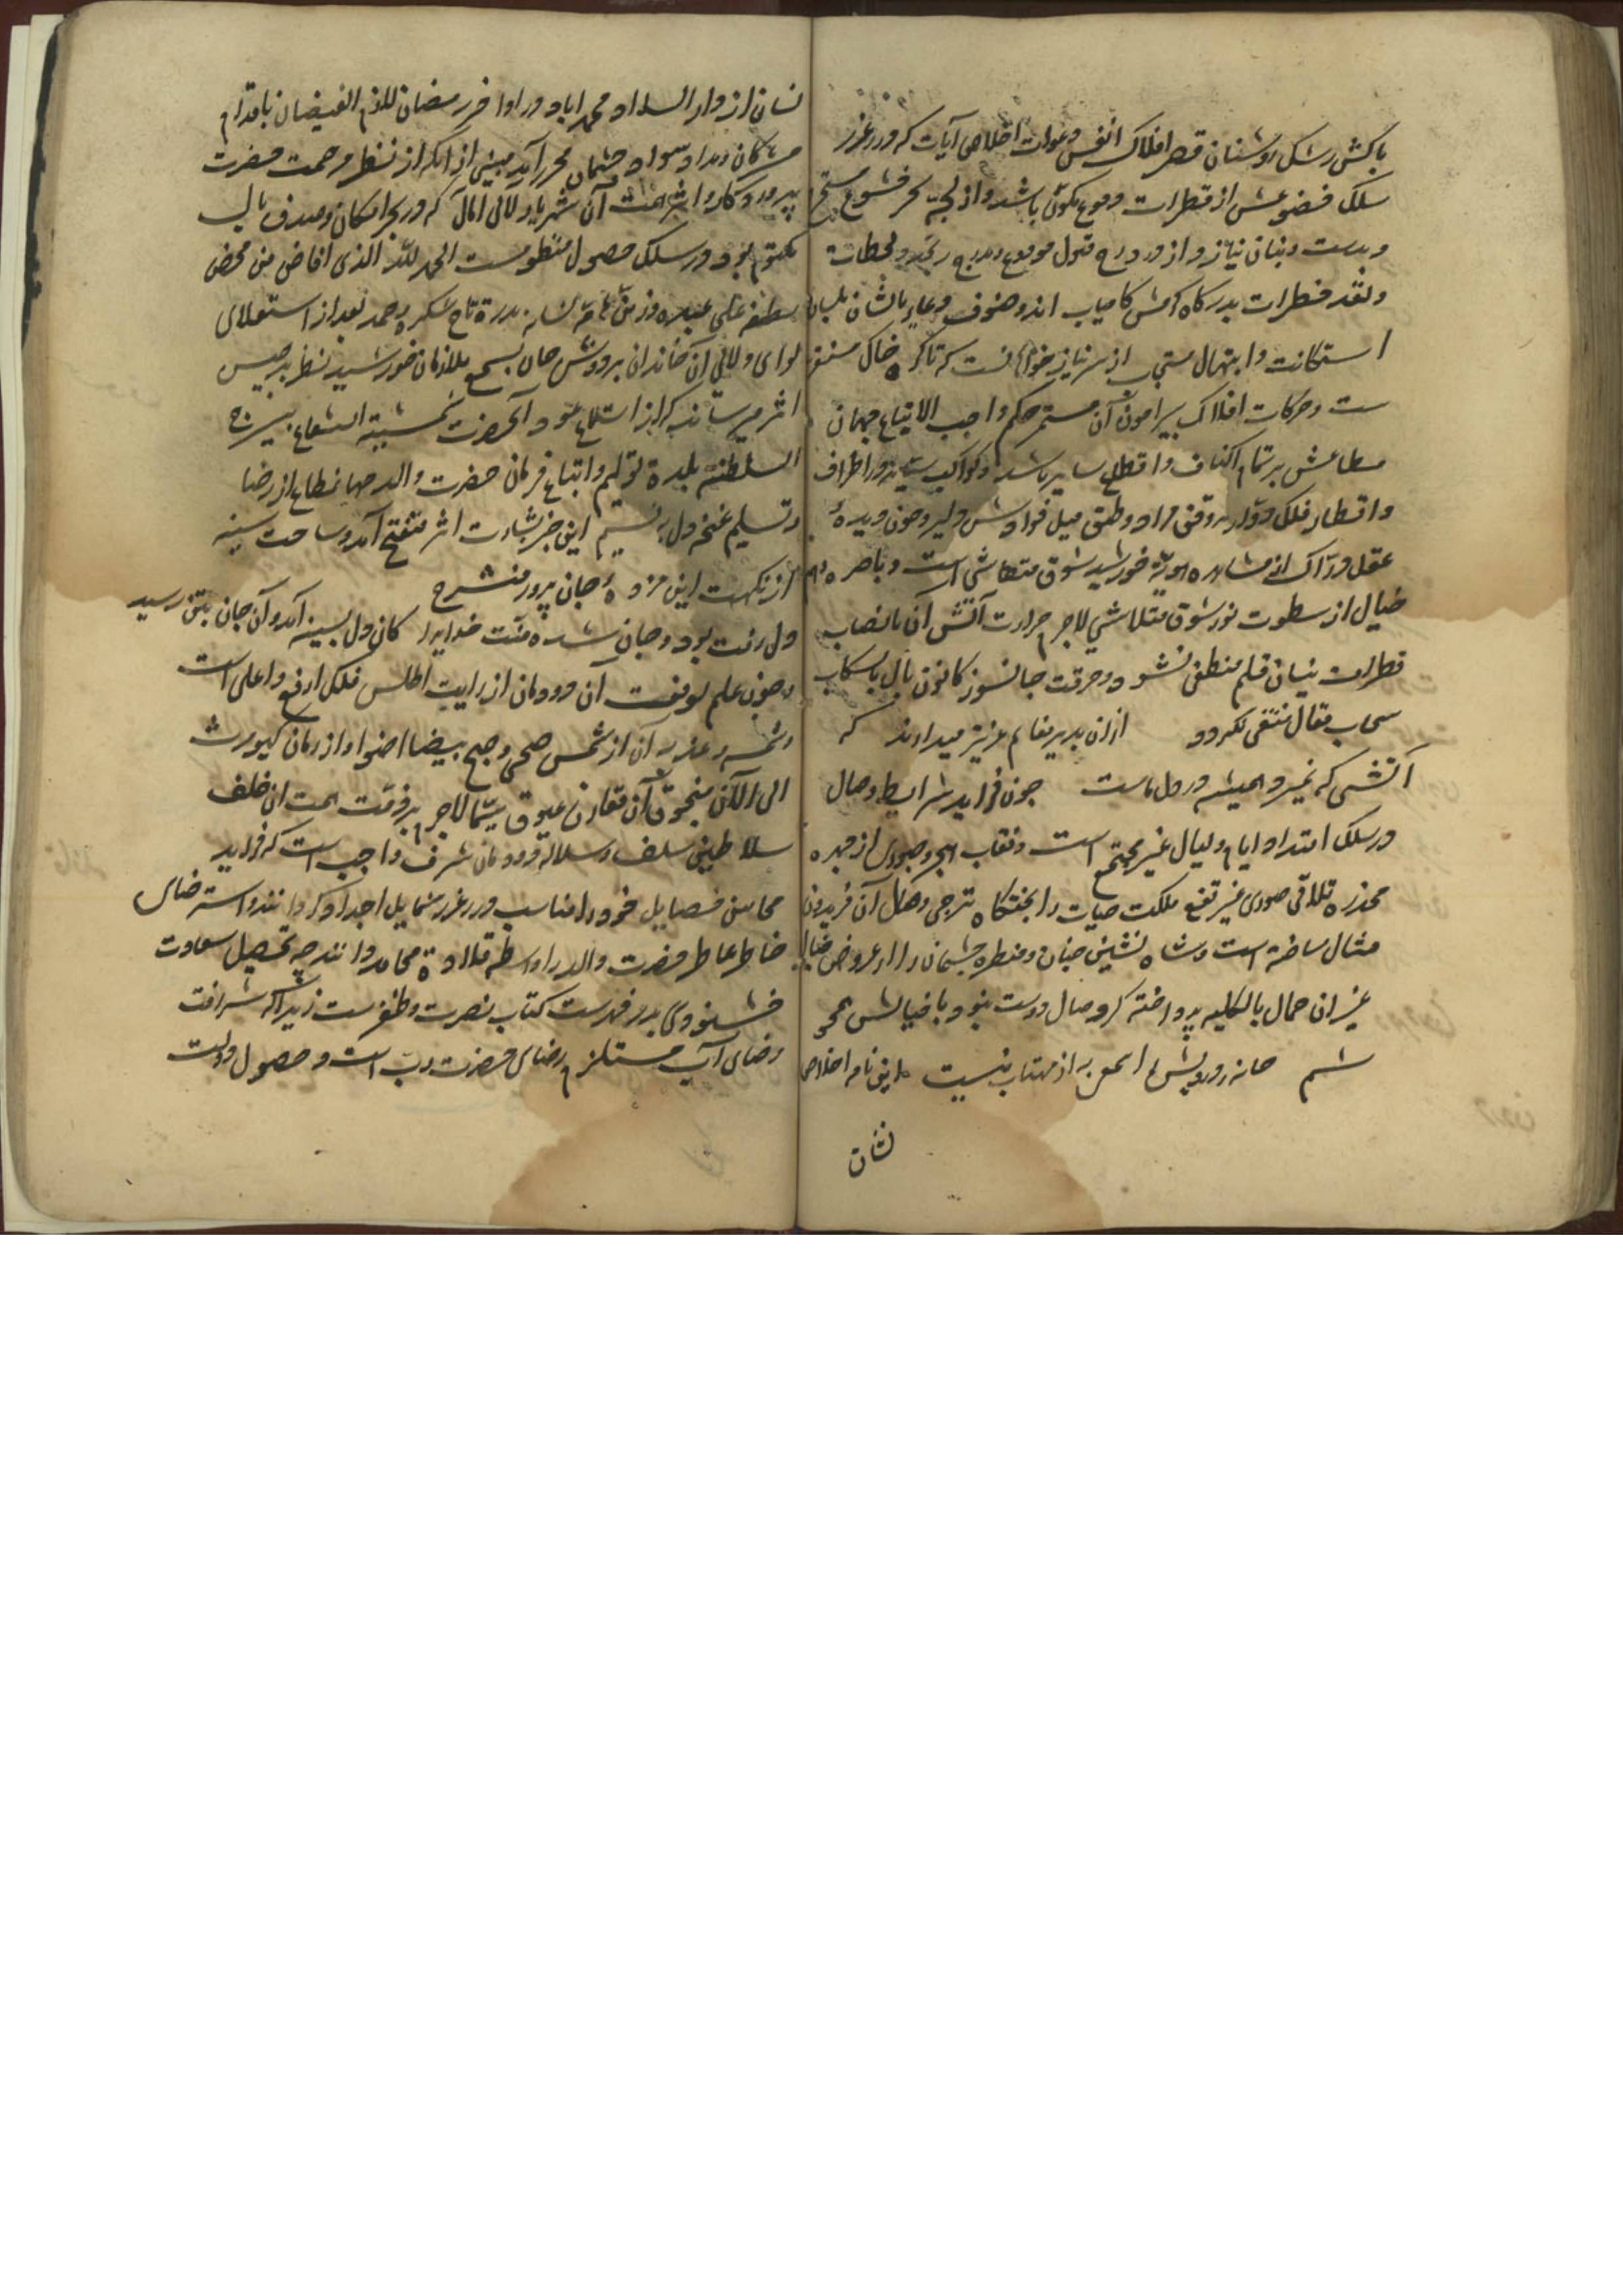 باکش رشک روشنان قصر افلاک انفس دعوات اخلاص آیات که درر غرر
سلک فضوعش از قطرات دموع مکون باشد و از لجه بحر خشوع مستخرج
و بدست بنان نیاز و از درج قبول مودوع و مدرج
و نقد فطرات بدرگاه کامیاب اند و صنوف دعاء بالشان بلسان
استکانت و ابتهال مستجاب از سر نیاز خواهانست که تا کره خاک مستقر
ست و حرکات افلاک پیرامون آن مستمر حکم واجب الاتباع جهان
مطاعش بر تمام اکناف و اقطاع سایر باشد و کواکب سیاره در اطراف
و اقطار فلک دوار بر وفق مراد و طبق میل فوادش دایر و چون دیده
عقل دراک از مشاهده هویّه خورشید شوق متحاشی است و باصره وهم
خیال از سطوت نور شوق متلاشی لاجرم حرارت آتش آن بانصباب
قطرات نیسان قلم منطفی نشود و حرقت جانسوز کانون بال باسکاب
سحاب مقال منتفی نکردد ازان بدیر مغانم عزیز میدارند که
آتشی که نمیرد همیشه در دل ماست چون فراید شرایط وصال
در سلک امتداد ایام و لیال غیر مجتمع است و نقاب هجر و صبوری از چهره
مخدره تلاقی صوری غیر مرتفع ملکت حیات را بختکاه ترجی وصال آن فریدون
مثال ساخته است و شاه نشین جنان و منظره چشمان را از عروض خیال
غیر آن جمال بالکلیه پرداخته کر وصال دوست نبود با خیالش هم خوشم
خانه درویش را شمعی به از مهتاب نیست این نامه اخلاص
نشان
نشان از دار السداد محمداباد در اواخر رمضان للازم الفیضان باقدام
مژکان و مداد سواد چشمان محرر آمد مبنی از آنکه از نظر مرحمت حضرت
پروردکار و اثر همت آن شهریار لآلی آمال که در بحر امکان و صدف بال
مکتوم بود در سلک حصول منظومست الحمد لله الذی افاض من محض
لطفه علی عبده و زین هامة لسانه بدرة تاج شکره و حمده بعد از استعلای
لوای ولای آن خاندان بر دوش جان بسمع ملازمان خورشید نظر برجیس
اثر میرساند که از استماع عود آنحضرت شمسیة الشعاع بسریر
السلطنه بلده و اتباع فرمان حضرت والد جهانمطاع از رضا
و تسلیم غنچه دل به نسیم این خبر بشارت اثر متفتح آمد و ساحت سینه
از نکهت این مژده جان پرور منشرح
دل رفت بود و جان شده منت خدایرا کان دل بسینه آمد و آن جان بتن رسید
و چون علم رفعت آن دودمان از رایت اطلس فلک ارفع و اعلی است
و شمسه آن از شمس ضحی و صبح بیضا اضوا و از زمان کیومرث
الی الآن منجوق آن مقارن عیوق سما لاجرم بر ذمت همت ان خلف
سلاطین سلف و سلاله دودمان شرف واجب است که فراید
محاسن خصایل خود را مناسب درر غرر شمایل اجداد کرداند و استرضای
خاطر عاطر حضرت والد را واسطه قلاده محامد داند چه تحصیل سعادت
خشنودی پدر فهرست کتاب نصرت و ظفرست زیرا که شرافت
رضای اب مستلزم رضای حضرت رب است و حصول دولت